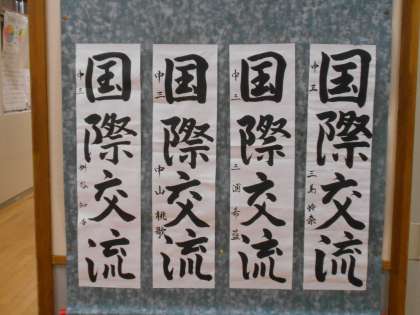 国際交流
中三
国際交流
中三
国際交流
中三 中山桃歌
国際交流
中三